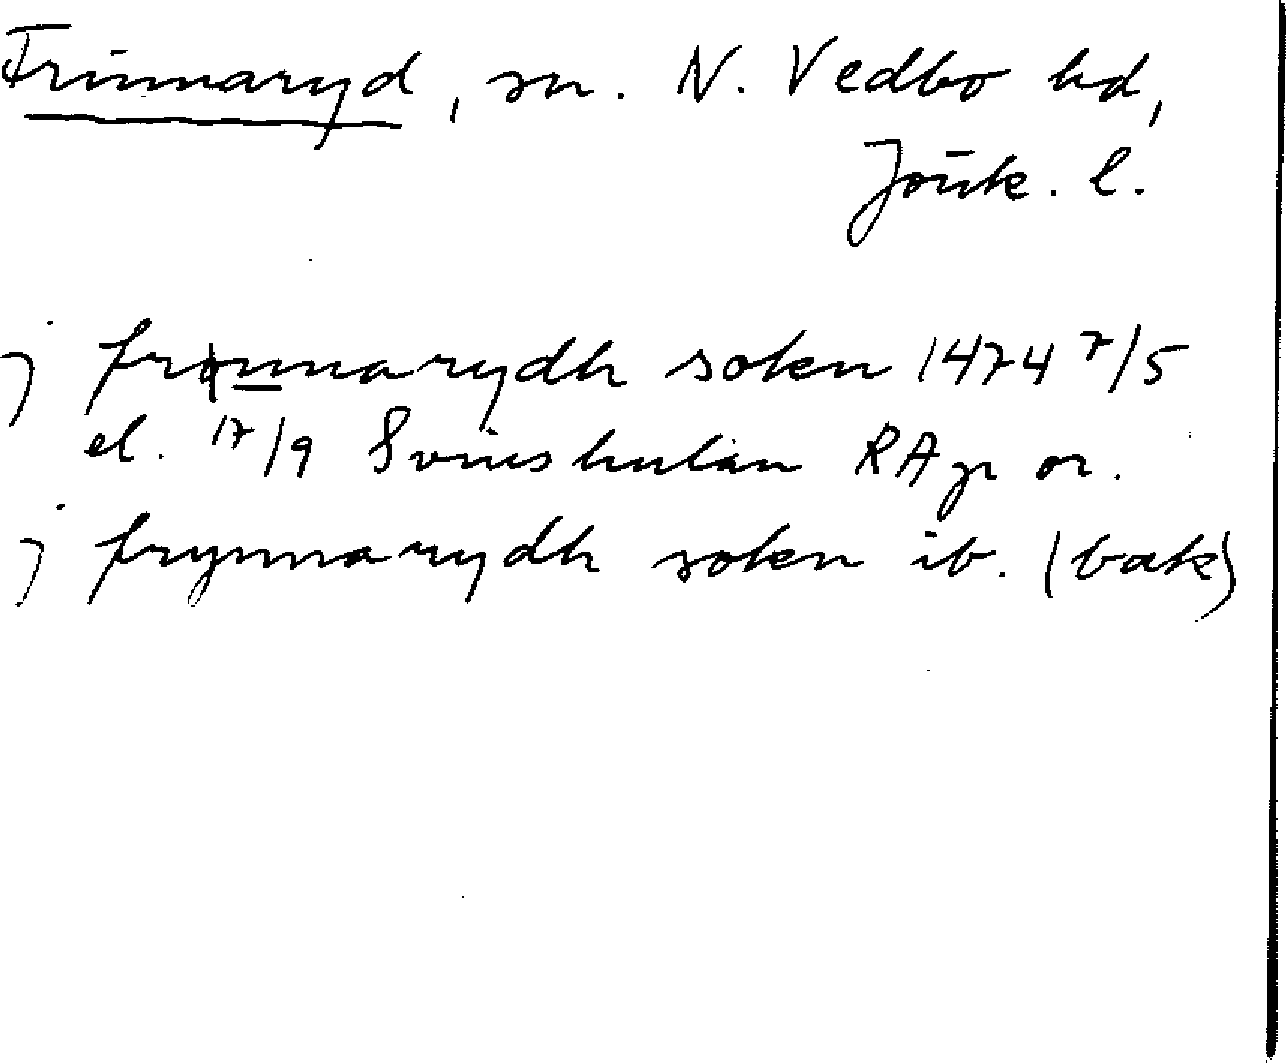 Frinnaryd, sn. N. Vedbo hd,
Jönk. l.
j frønnarydh soken 1474 7/5
el. 17/9 Svinshulän RAp or.
j frynnarydh soken ib. (bak)